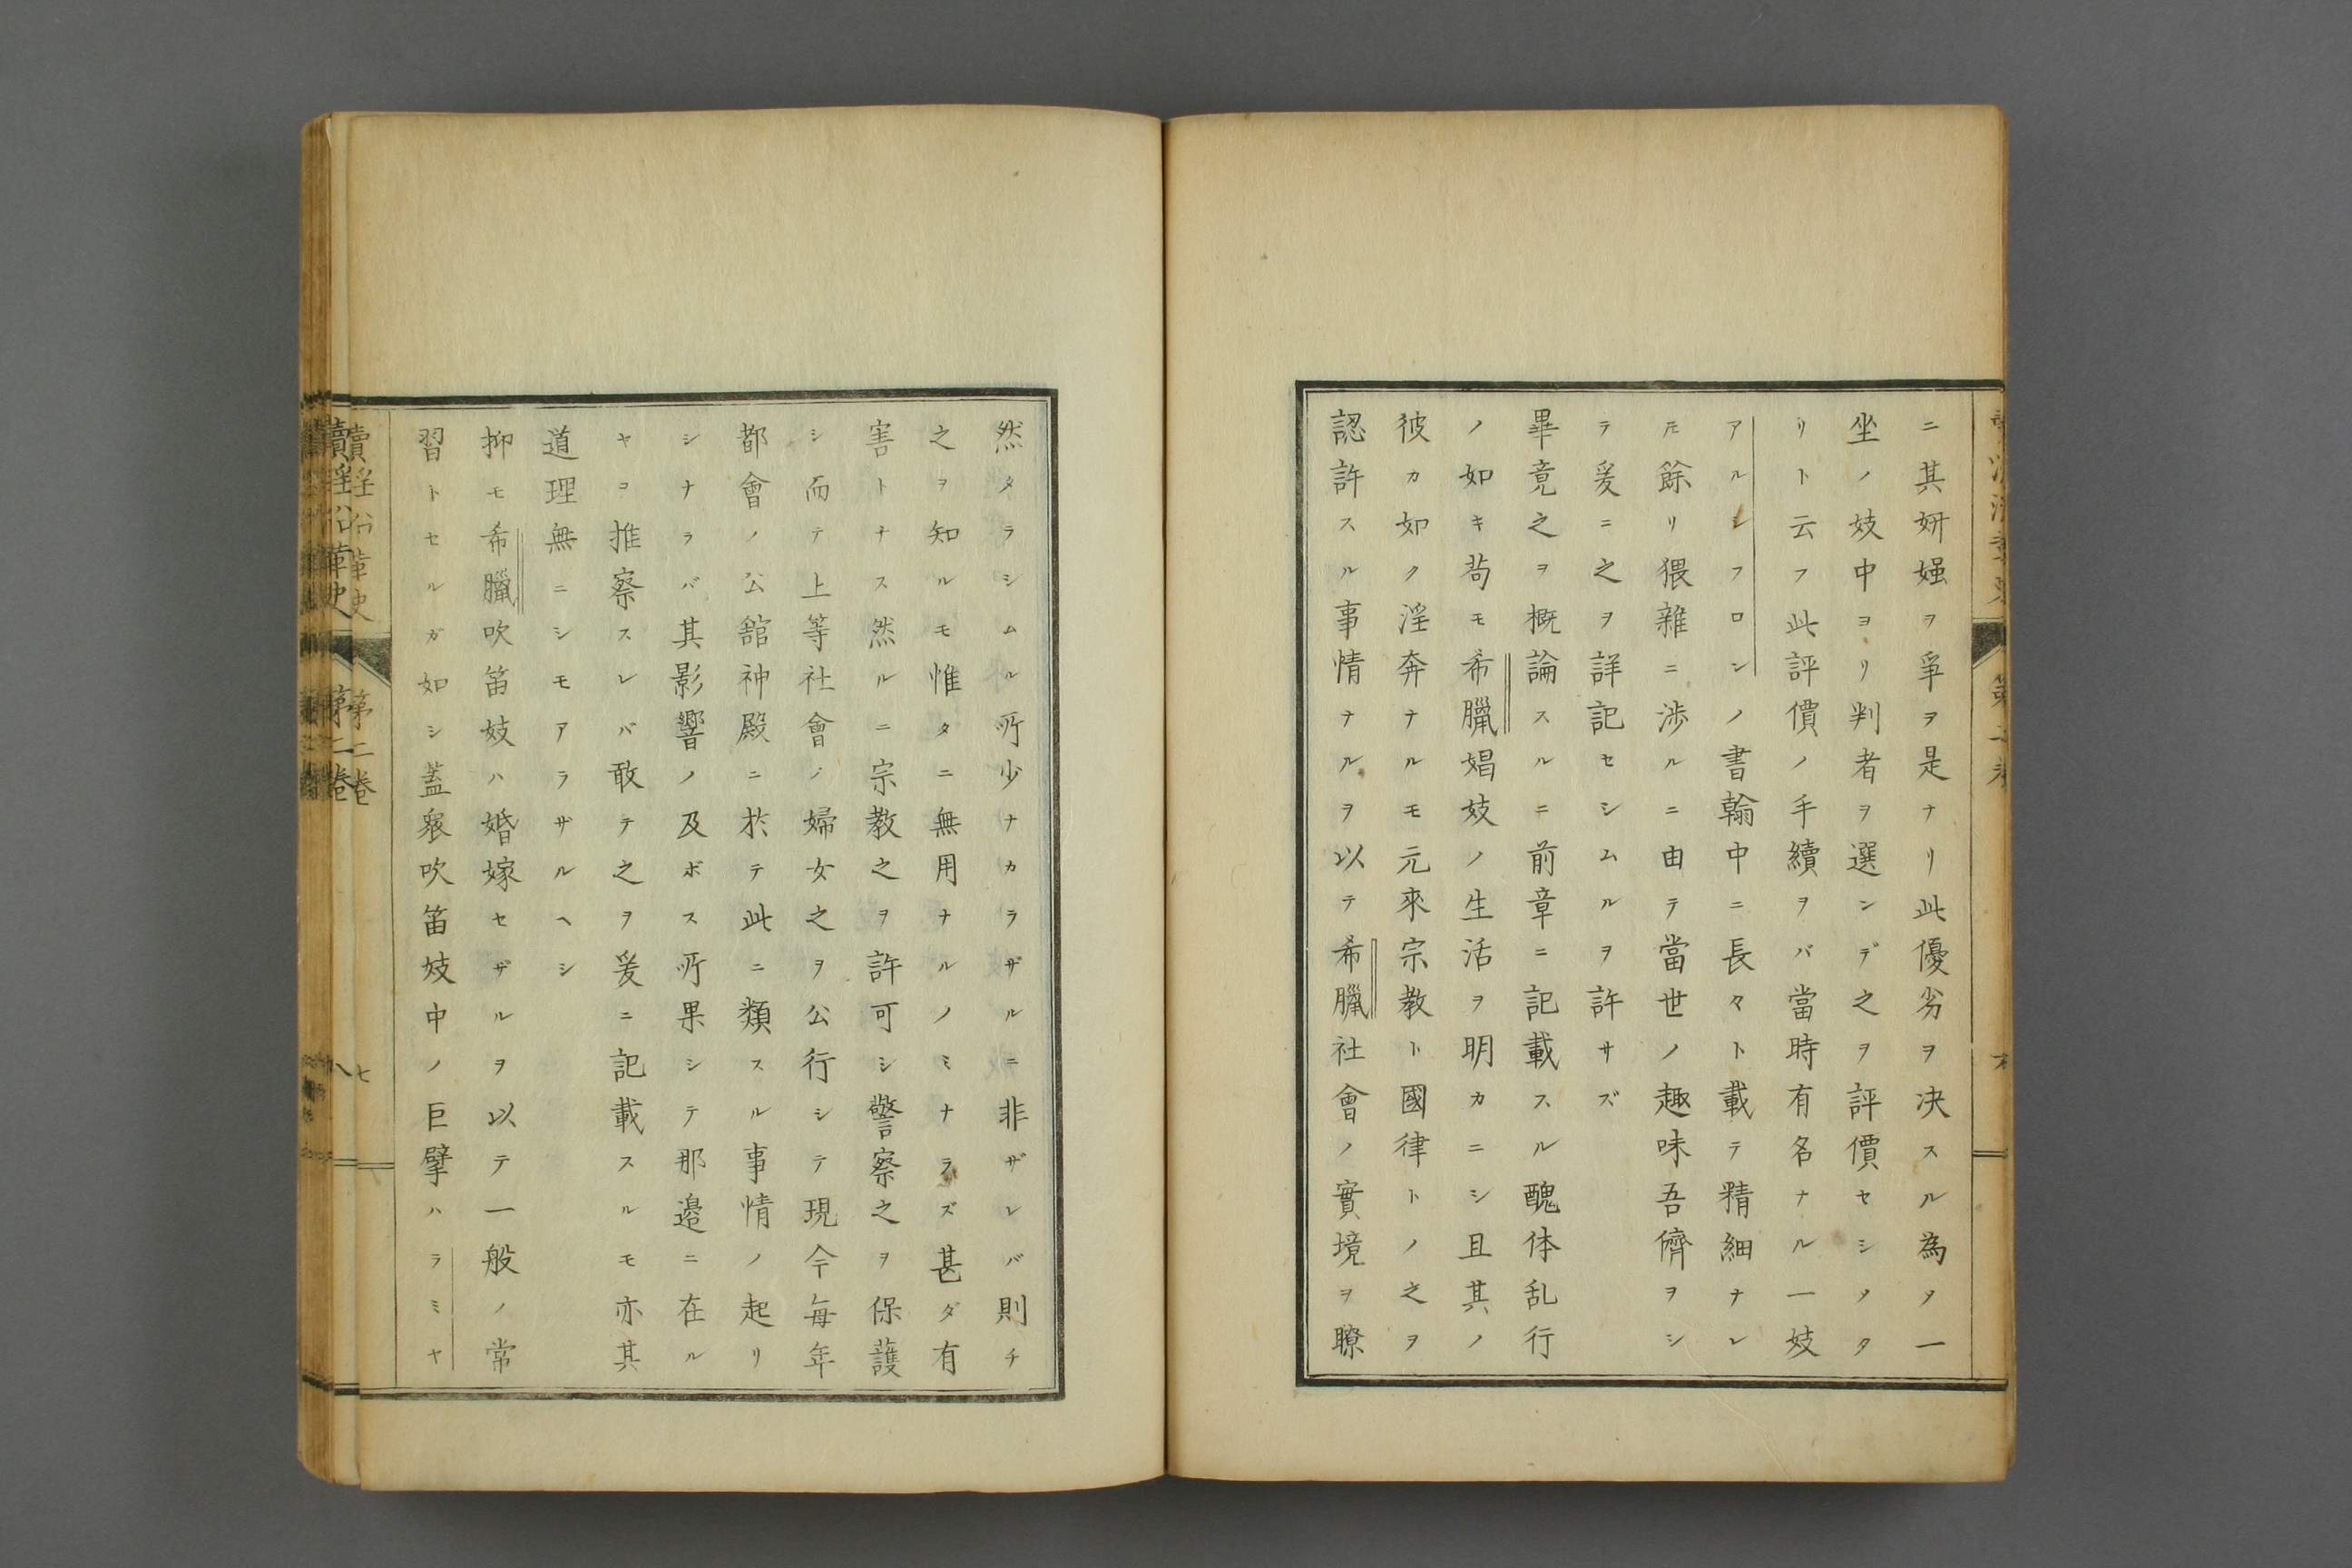 ニ其妍媸ヲ爭ヲ是ナリ此優劣ヲ决スル為メ一
坐ノ妓中ヨリ判者ヲ選ンデ之ヲ評價セシメタ
リト云フ此評價ノ手續ヲバ當時有名ナル一妓
アルシフロンノ書翰中ニ長々ト載テ精細ナレ
𪜈餘リ猥雜ニ渉ルニ由テ當世ノ趣味吾儕ヲシ
テ爰ニ之ヲ詳記セシムルヲ許サズ
畢竟之ヲ概論スルニ前章ニ記載スル醜体乱行
ノ如キ茍モ希臘娼妓ノ生活ヲ明カニシ且其ノ
彼カ如ク淫奔ナルモ元來宗教ト國律トノ之ヲ
認許スル事情ナルヲ以テ希臘社會ノ實境ヲ瞭
然タラシムル所少ナカラザルニ非ザレバ則チ
之ヲ知ルモ惟タニ無用ナルノミナラズ甚ダ有
害トナス然ルニ宗教之ヲ許可シ警察之ヲ保護
シ而テ上等社會ノ婦女之ヲ公行シテ現今毎年
都會ノ公舘神殿ニ於テ此ニ類スル事情ノ起リ
シナラバ其影響ノ及ボス所果シテ那邉ニ在ル
ヤコ推察スレバ敢テ之ヲ爰ニ記載スルモ亦其
道理無ニシモアラザルヘシ
抑モ希臘吹笛妓ハ婚嫁セザルヲ以テ一般ノ常
習トセルガ如シ蓋衆吹笛妓中ノ巨擘ハラミヤ
賣淫沿革史
第二卷
七
賣淫沿革史
第二卷
八